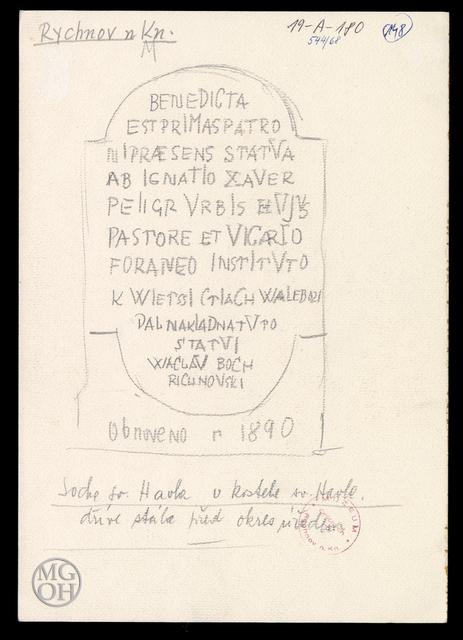 Rychnov n Kn.
19-A-180
544/68
148
BENEDICTA
EST PRIMAS PATRO
NI PRÆSENS STATVA
AB IGNATIO XAVER
PELIGR VRBIS HVJVS
PASTORE ET VICARIO
FORANEO INSTITVTO
K WIETSI CTIACH WALEBOZI
DAL NAKLAD NA TVTO
STATVI
WACLAV BOCH
RICHNOVSKI
Obnoveno r 1890
Socha sv. Havla u kostela sv. Havla.
dříve stála před okres. úřadem
MUZEUM
RYCHNOV n. KN.
MG
OH